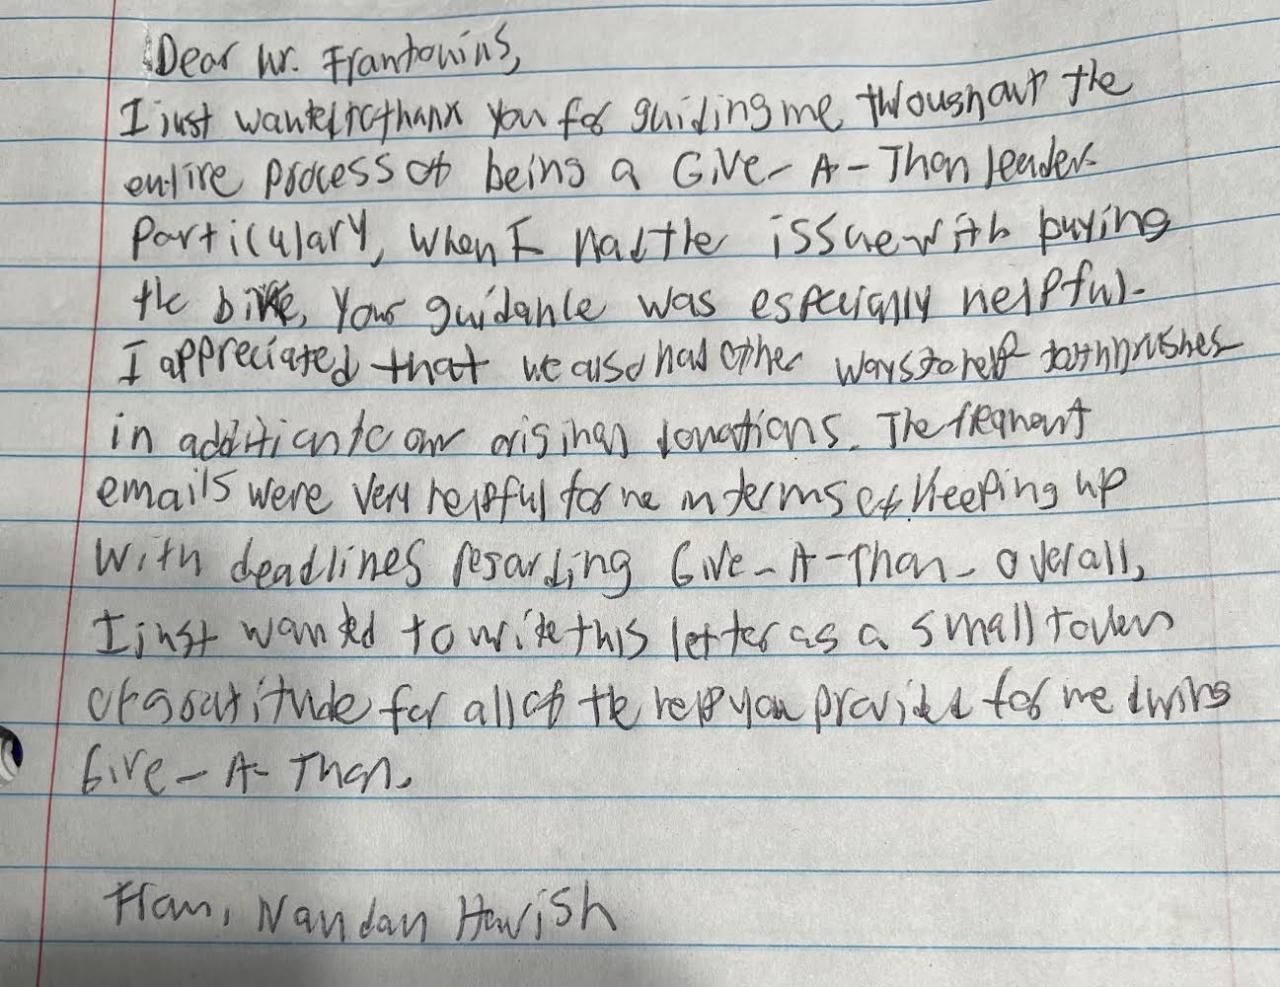 Dear Mr. Frantonins,
I just wanted to thank you for guiding me throughout the
entire process of being a Give-A-Thon leader.
Particulary, when I had the issue with buying
the bike, your guidance was especially helpful.
I appreciated that we also had other ways to help
in addition to our original donations. The frequent
emails were very helpful for me in terms of keeping up
with deadlines regarding Give-A-Thon. Overall,
I just wanted to write this letter as a small token
of gratitude for all of the help you provided for me during
Give-A-Thon.
From, Nandan Harish